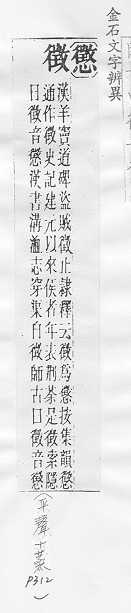 金石文字辨異
懲
徵
漢羊竇道碑盜賊徵止隸釋云徵爲懲按集韻懲
通作徵史記建元以來侯者年表荊荼是徵索隱
曰徵音懲漢書溝洫志穿渠自徵師古曰徵音懲
(平聲十蒸
P312)